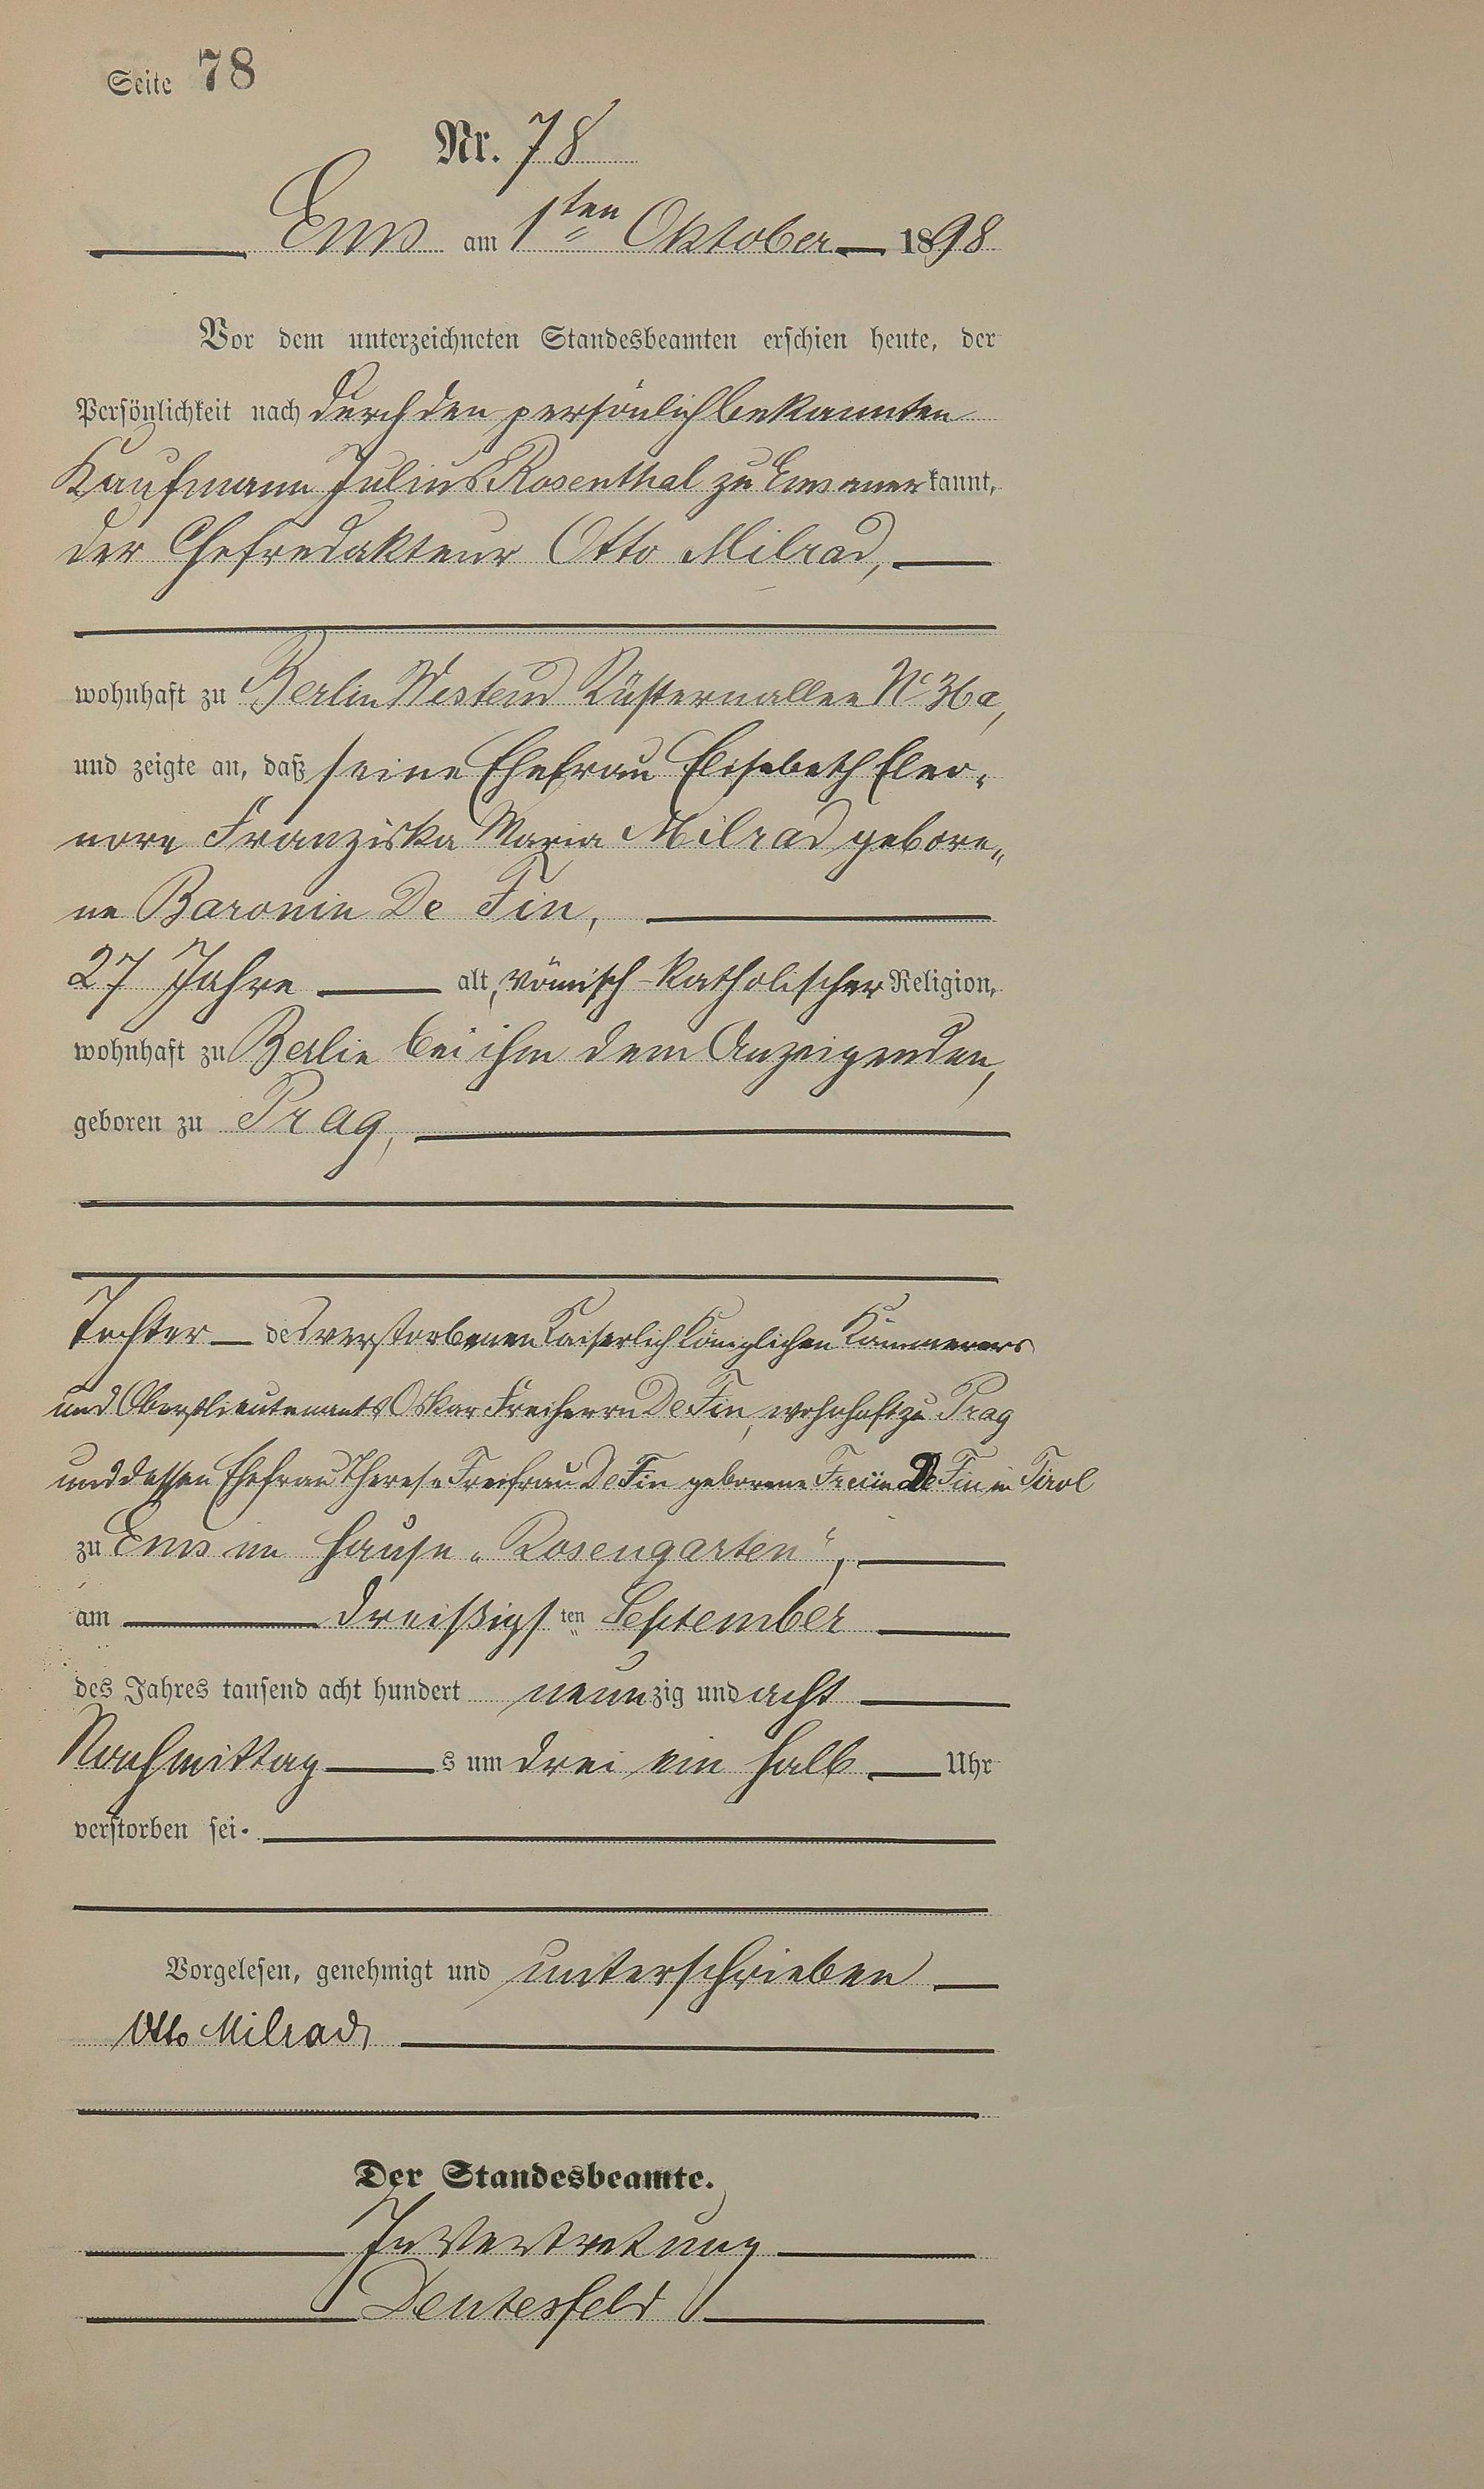 Seite 78
Nr. 78
Ems am 1ten Oktober 1898
Vor dem unterzeichneten Standesbeamten erschien heute, der
Persönlichkeit nach durch den persönlich bekannten
Kaufmann Julius Rosenthal zu Ems anerkannt,
der Chefredakteur Otto Milrad,
wohnhaft zu Berlin Westend Rüsternallee No 36a,
und zeigte an, daß seine Ehefrau Elisabeth Eleo-
nore Franziska Maria Milrad gebore-
ne Baronin De Fin,
27 Jahre alt, römisch-katholischer Religion,
wohnhaft zu Berlin bei ihm dem Anzeigenden,
geboren zu Prag,
Tochter des verstorbenen Kaiserlich Königlichen Kämmerers
und Oberstlieutenants Oskar Freiherrn De Fin, wohnhaft zu Prag
und dessen Ehefrau Therese Freifrau De Fin geborene Freiin De Fin in Tirol
zu Ems im Hause „Rosengarten“,
am dreißigsten September
des Jahres tausend acht hundert neunzig und acht
Nachmittags um drei ein halb Uhr
verstorben sei.
Vorgelesen, genehmigt und unterschrieben
Otto Milrad
Der Standesbeamte.
In Vertretung
Deutesfeld